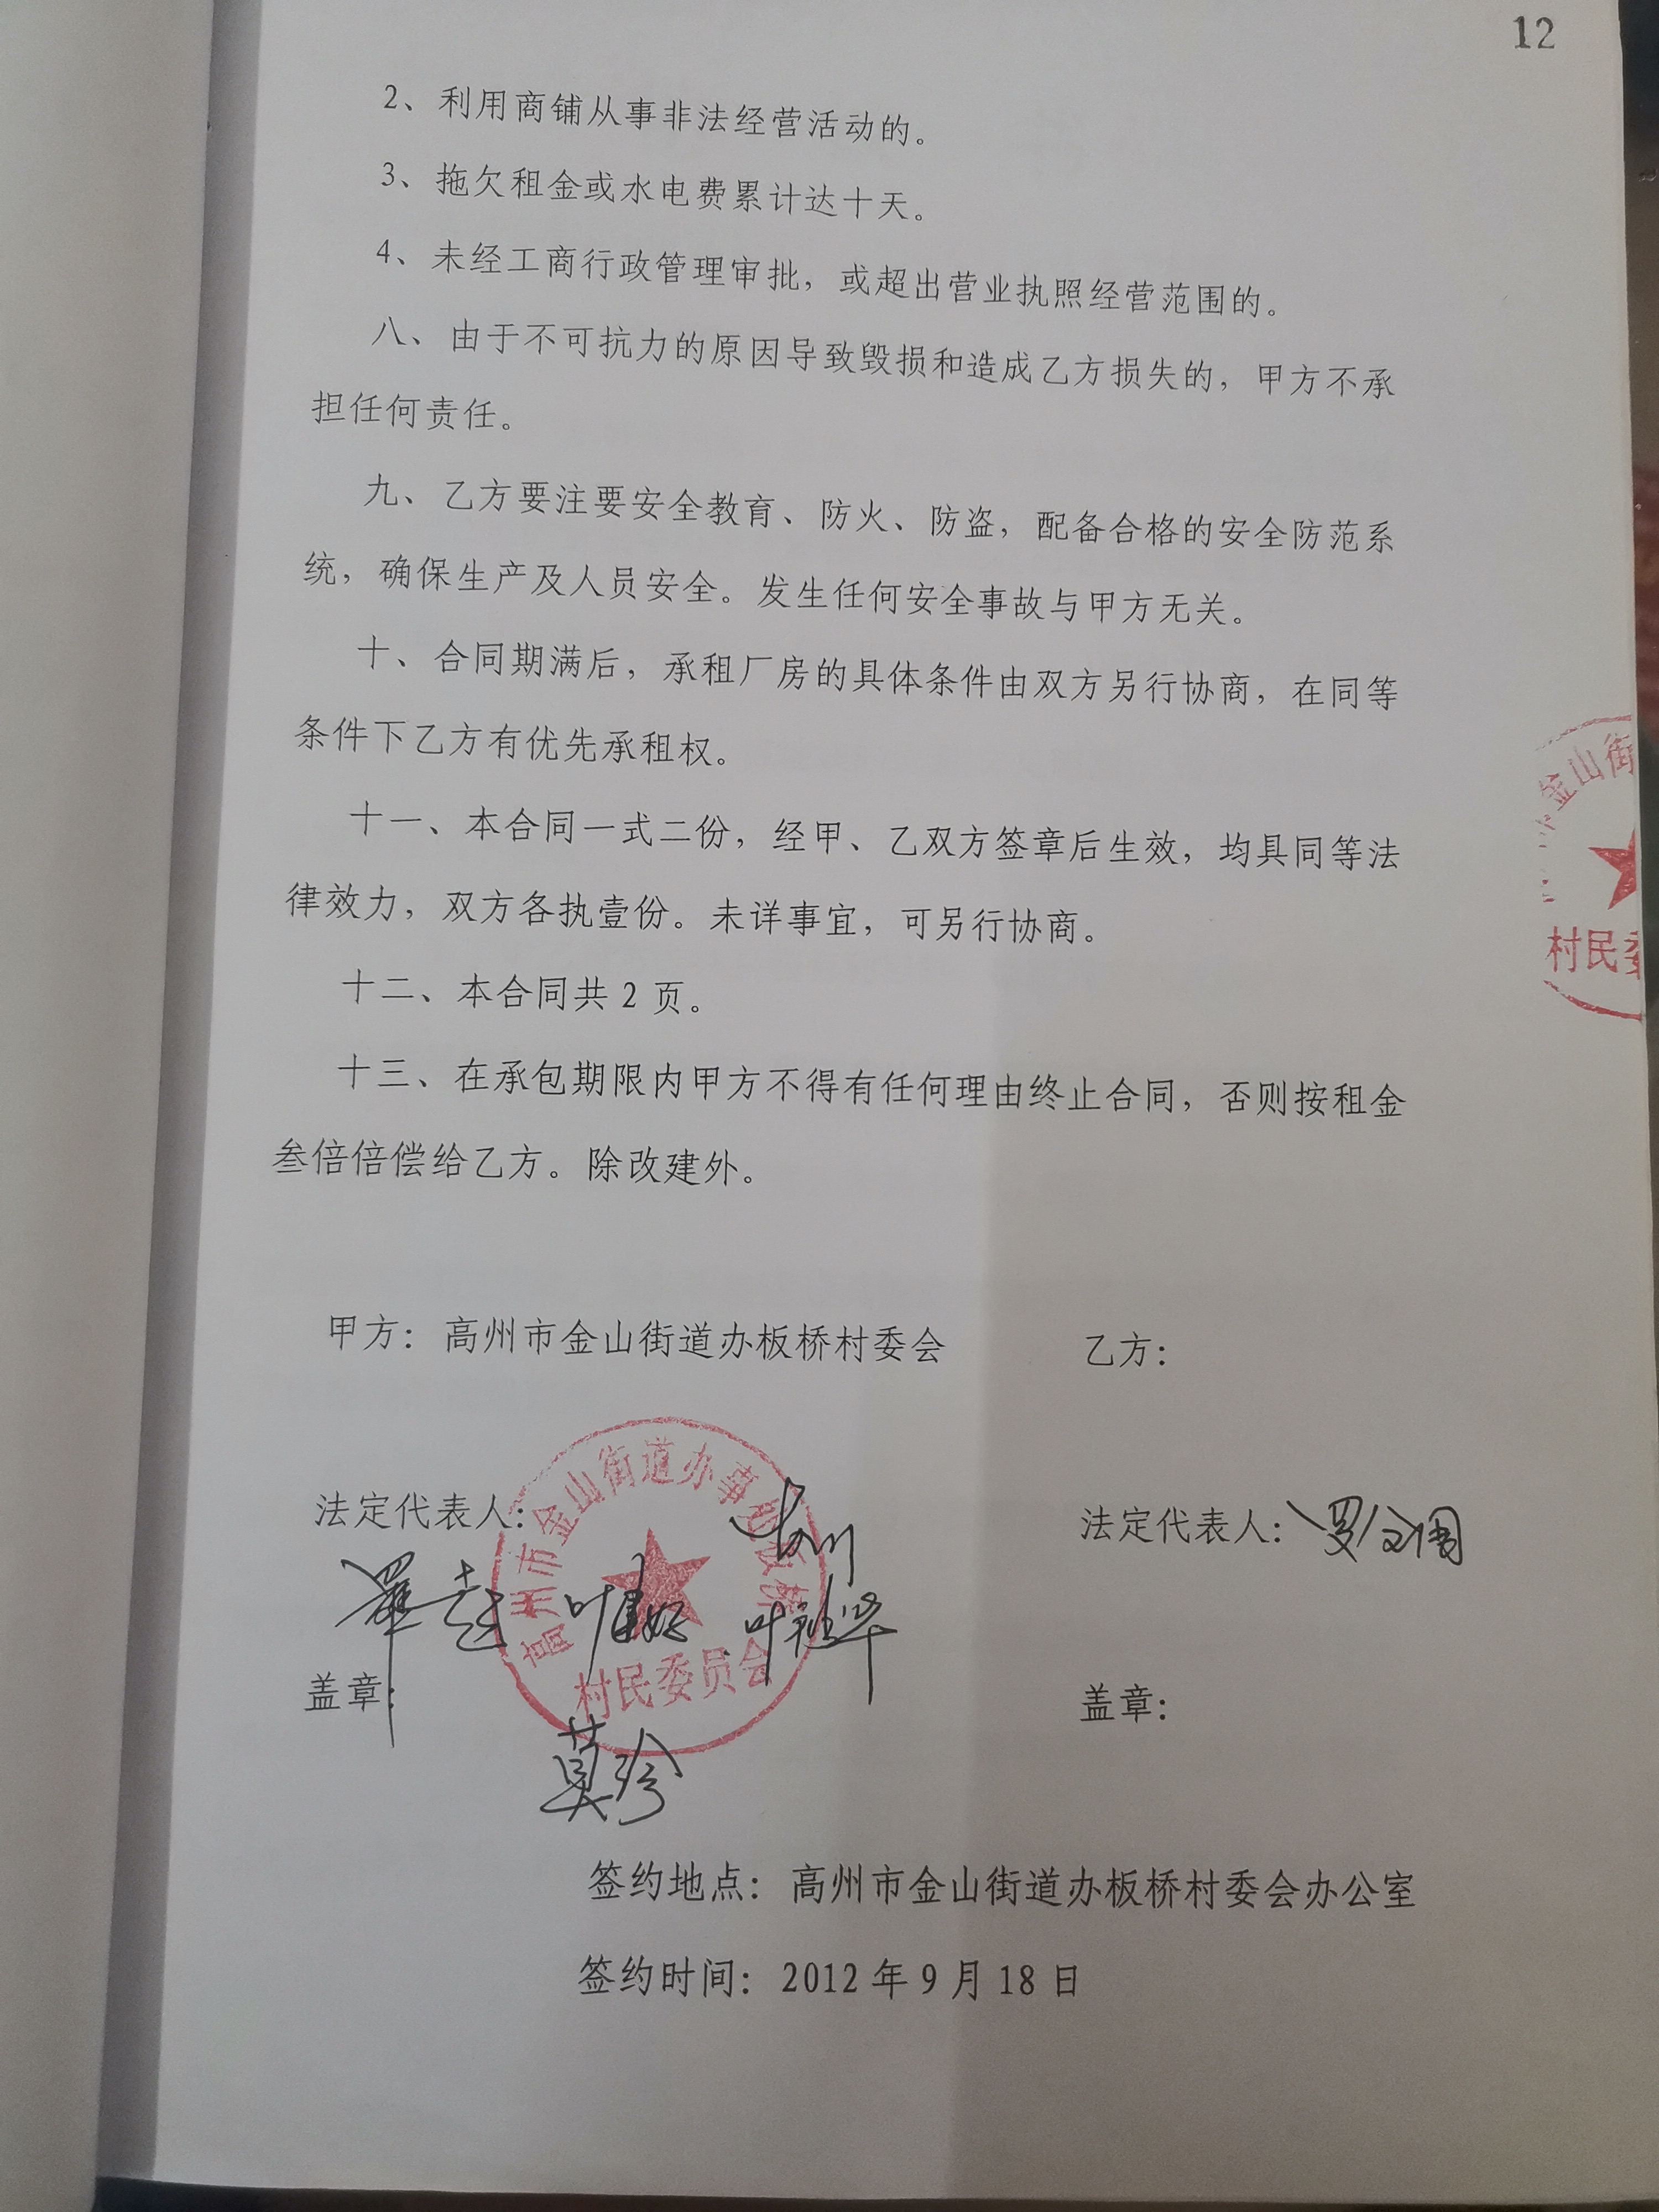 12
2、利用商铺从事非法经营活动的。
3、拖欠租金或水电费累计达十天。
4、未经工商行政管理审批，或超出营业执照经营范围的。
八、由于不可抗力的原因导致毁损和造成乙方损失的，甲方不承
担任何责任。
九、乙方要注要安全教育、防火、防盗，配备合格的安全防范系
统，确保生产及人员安全。发生任何安全事故与甲方无关。
十、合同期满后，承租厂房的具体条件由双方另行协商，在同等
条件下乙方有优先承租权。
十一、本合同一式二份，经甲、乙双方签章后生效，均具同等法
律效力，双方各执壹份。未详事宜，可另行协商。
金山街
村民委
十二、本合同共 2 页。
十三、在承包期限内甲方不得有任何理由终止合同，否则按租金
叁倍倍偿给乙方。除改建外。
甲方：高州市金山街道办板桥村委会 乙方：
高州市金山街道办事处板桥
村民委员会
法定代表人： 法定代表人：
盖章： 盖章：
签约地点：高州市金山街道办板桥村委会办公室
签约时间：2012 年 9 月 18 日